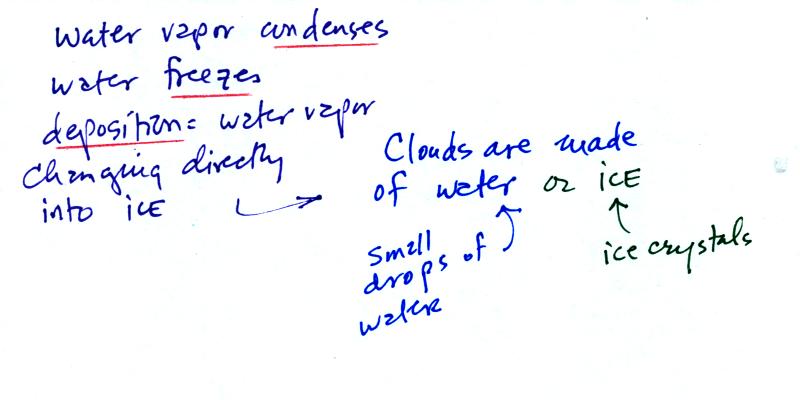 water vapor condenses
water freezes
deposition = water vapor
changing directly
into ICE
Clouds are made
of water or ICE
small
drops of
water
ice crystals